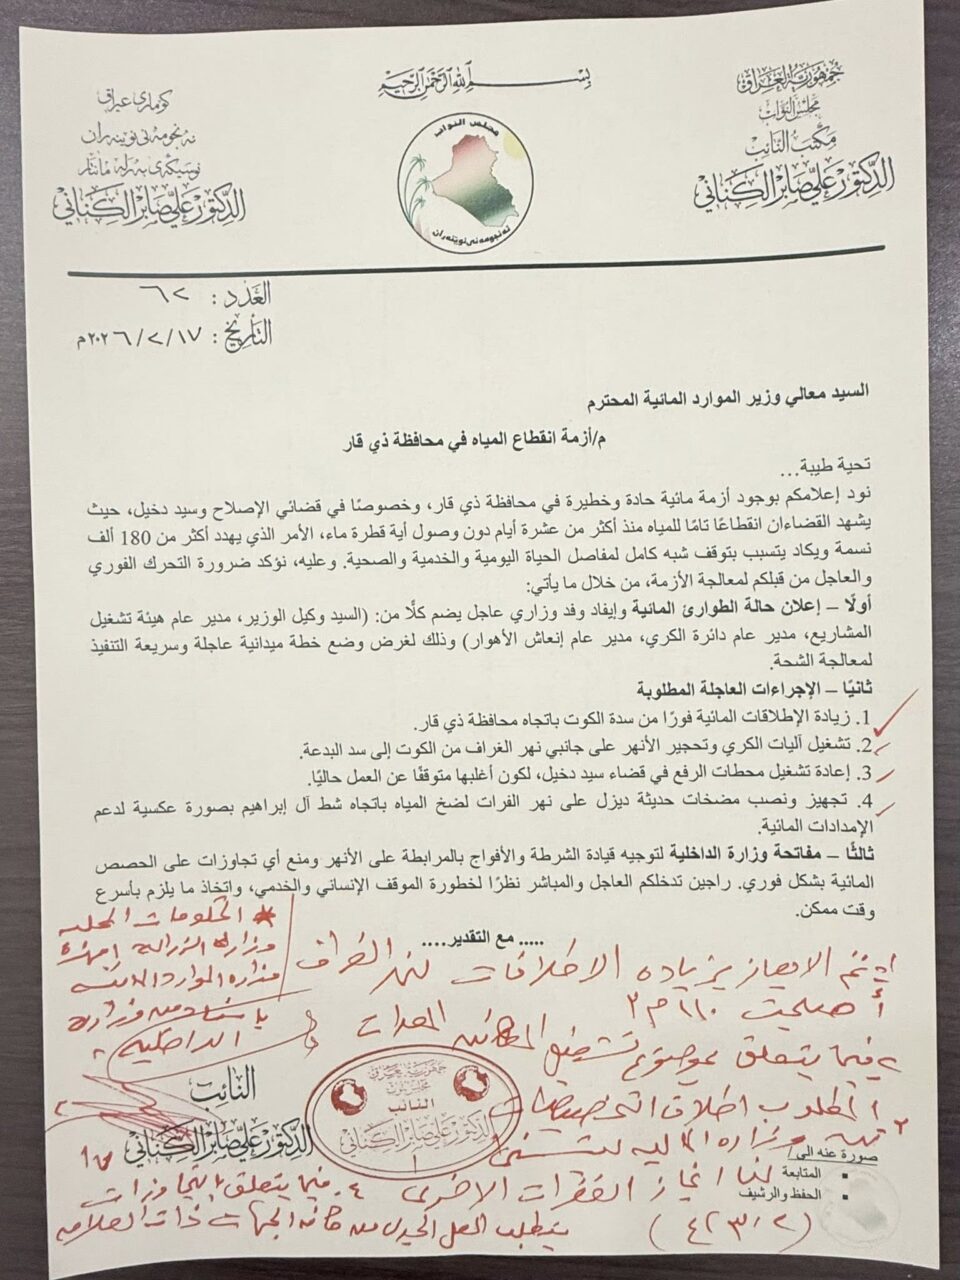 بسم الله الرحمن الرحيم
جمهورية العراق
مجلس النواب
مكتب النائب
الدكتور علي صابر الكناني
كۆماری عێراق
ئەنجومەنی نوێنەران
نوسینگەی بەڕێز
الدكتور علي صابر الكناني
مجلس النواب
ئەنجومەنی نوێنەران
العدد : ٦٢
التاريخ : ٢٠٢٦/٢/١٧م
السيد معالي وزير الموارد المائية المحترم
م/أزمة انقطاع المياه في محافظة ذي قار
تحية طيبة...
نود إعلامكم بوجود أزمة مائية حادة وخطيرة في محافظة ذي قار، وخصوصًا في قضائي الإصلاح وسيد دخيل، حيث
يشهد القضاءان انقطاعًا تامًا للمياه منذ أكثر من عشرة أيام دون وصول أية قطرة ماء، الأمر الذي يهدد أكثر من 180 ألف
نسمة ويكاد يتسبب بتوقف شبه كامل لمفاصل الحياة اليومية والخدمية والصحية. وعليه، نؤكد ضرورة التحرك الفوري
والعاجل من قبلكم لمعالجة الأزمة، من خلال ما يأتي:
أولًا – إعلان حالة الطوارئ المائية وإيفاد وفد وزاري عاجل يضم كلًا من: (السيد وكيل الوزير، مدير عام هيئة تشغيل
المشاريع، مدير عام دائرة الكري، مدير عام إنعاش الأهوار) وذلك لغرض وضع خطة ميدانية عاجلة وسريعة التنفيذ
لمعالجة الشحة.
ثانيًا – الإجراءات العاجلة المطلوبة
1. زيادة الإطلاقات المائية فورًا من سدة الكوت باتجاه محافظة ذي قار.
2. تشغيل آليات الكري وتحجير الأنهر على جانبي نهر الغراف من الكوت إلى سد البدعة.
3. إعادة تشغيل محطات الرفع في قضاء سيد دخيل، لكون أغلبها متوقفًا عن العمل حاليًا.
4. تجهيز ونصب مضخات حديثة ديزل على نهر الفرات لضخ المياه باتجاه شط آل إبراهيم بصورة عكسية لدعم
الإمدادات المائية.
ثالثًا – مفاتحة وزارة الداخلية لتوجيه قيادة الشرطة والأفواج بالمرابطة على الأنهر ومنع أي تجاوزات على الحصص
المائية بشكل فوري. راجين تدخلكم العاجل والمباشر نظرًا لخطورة الموقف الإنساني والخدمي، واتخاذ ما يلزم بأسرع
وقت ممكن.
..... مع التقدير....
* الحكومات المحلية
وزارة الزراعة اجهزة
وزارة الموارد المائية
باسناد من وزارة
الداخلية
تم الايعاز بزيادة الاطلاقات لنهر الغراف
أصبحت ١١٠ م٣
فيما يتعلق بموضوع تشغيل المعدات
المطلوب اطلاق التخصيصات
وزارة المالية ليتسنى
لنا انجاز الفقرات الاخرى
٤. فيما يتعلق بالتجاوزات
يتطلب العمل الجدي من كافة الجهات ذات العلاقة
النائب
الدكتور علي صابر الكناني
جمهورية العراق
مجلس النواب
النائب
الدكتور علي صابر الكناني
١
صورة عنه الى/
▪ المتابعة
▪ الحفظ والارشيف